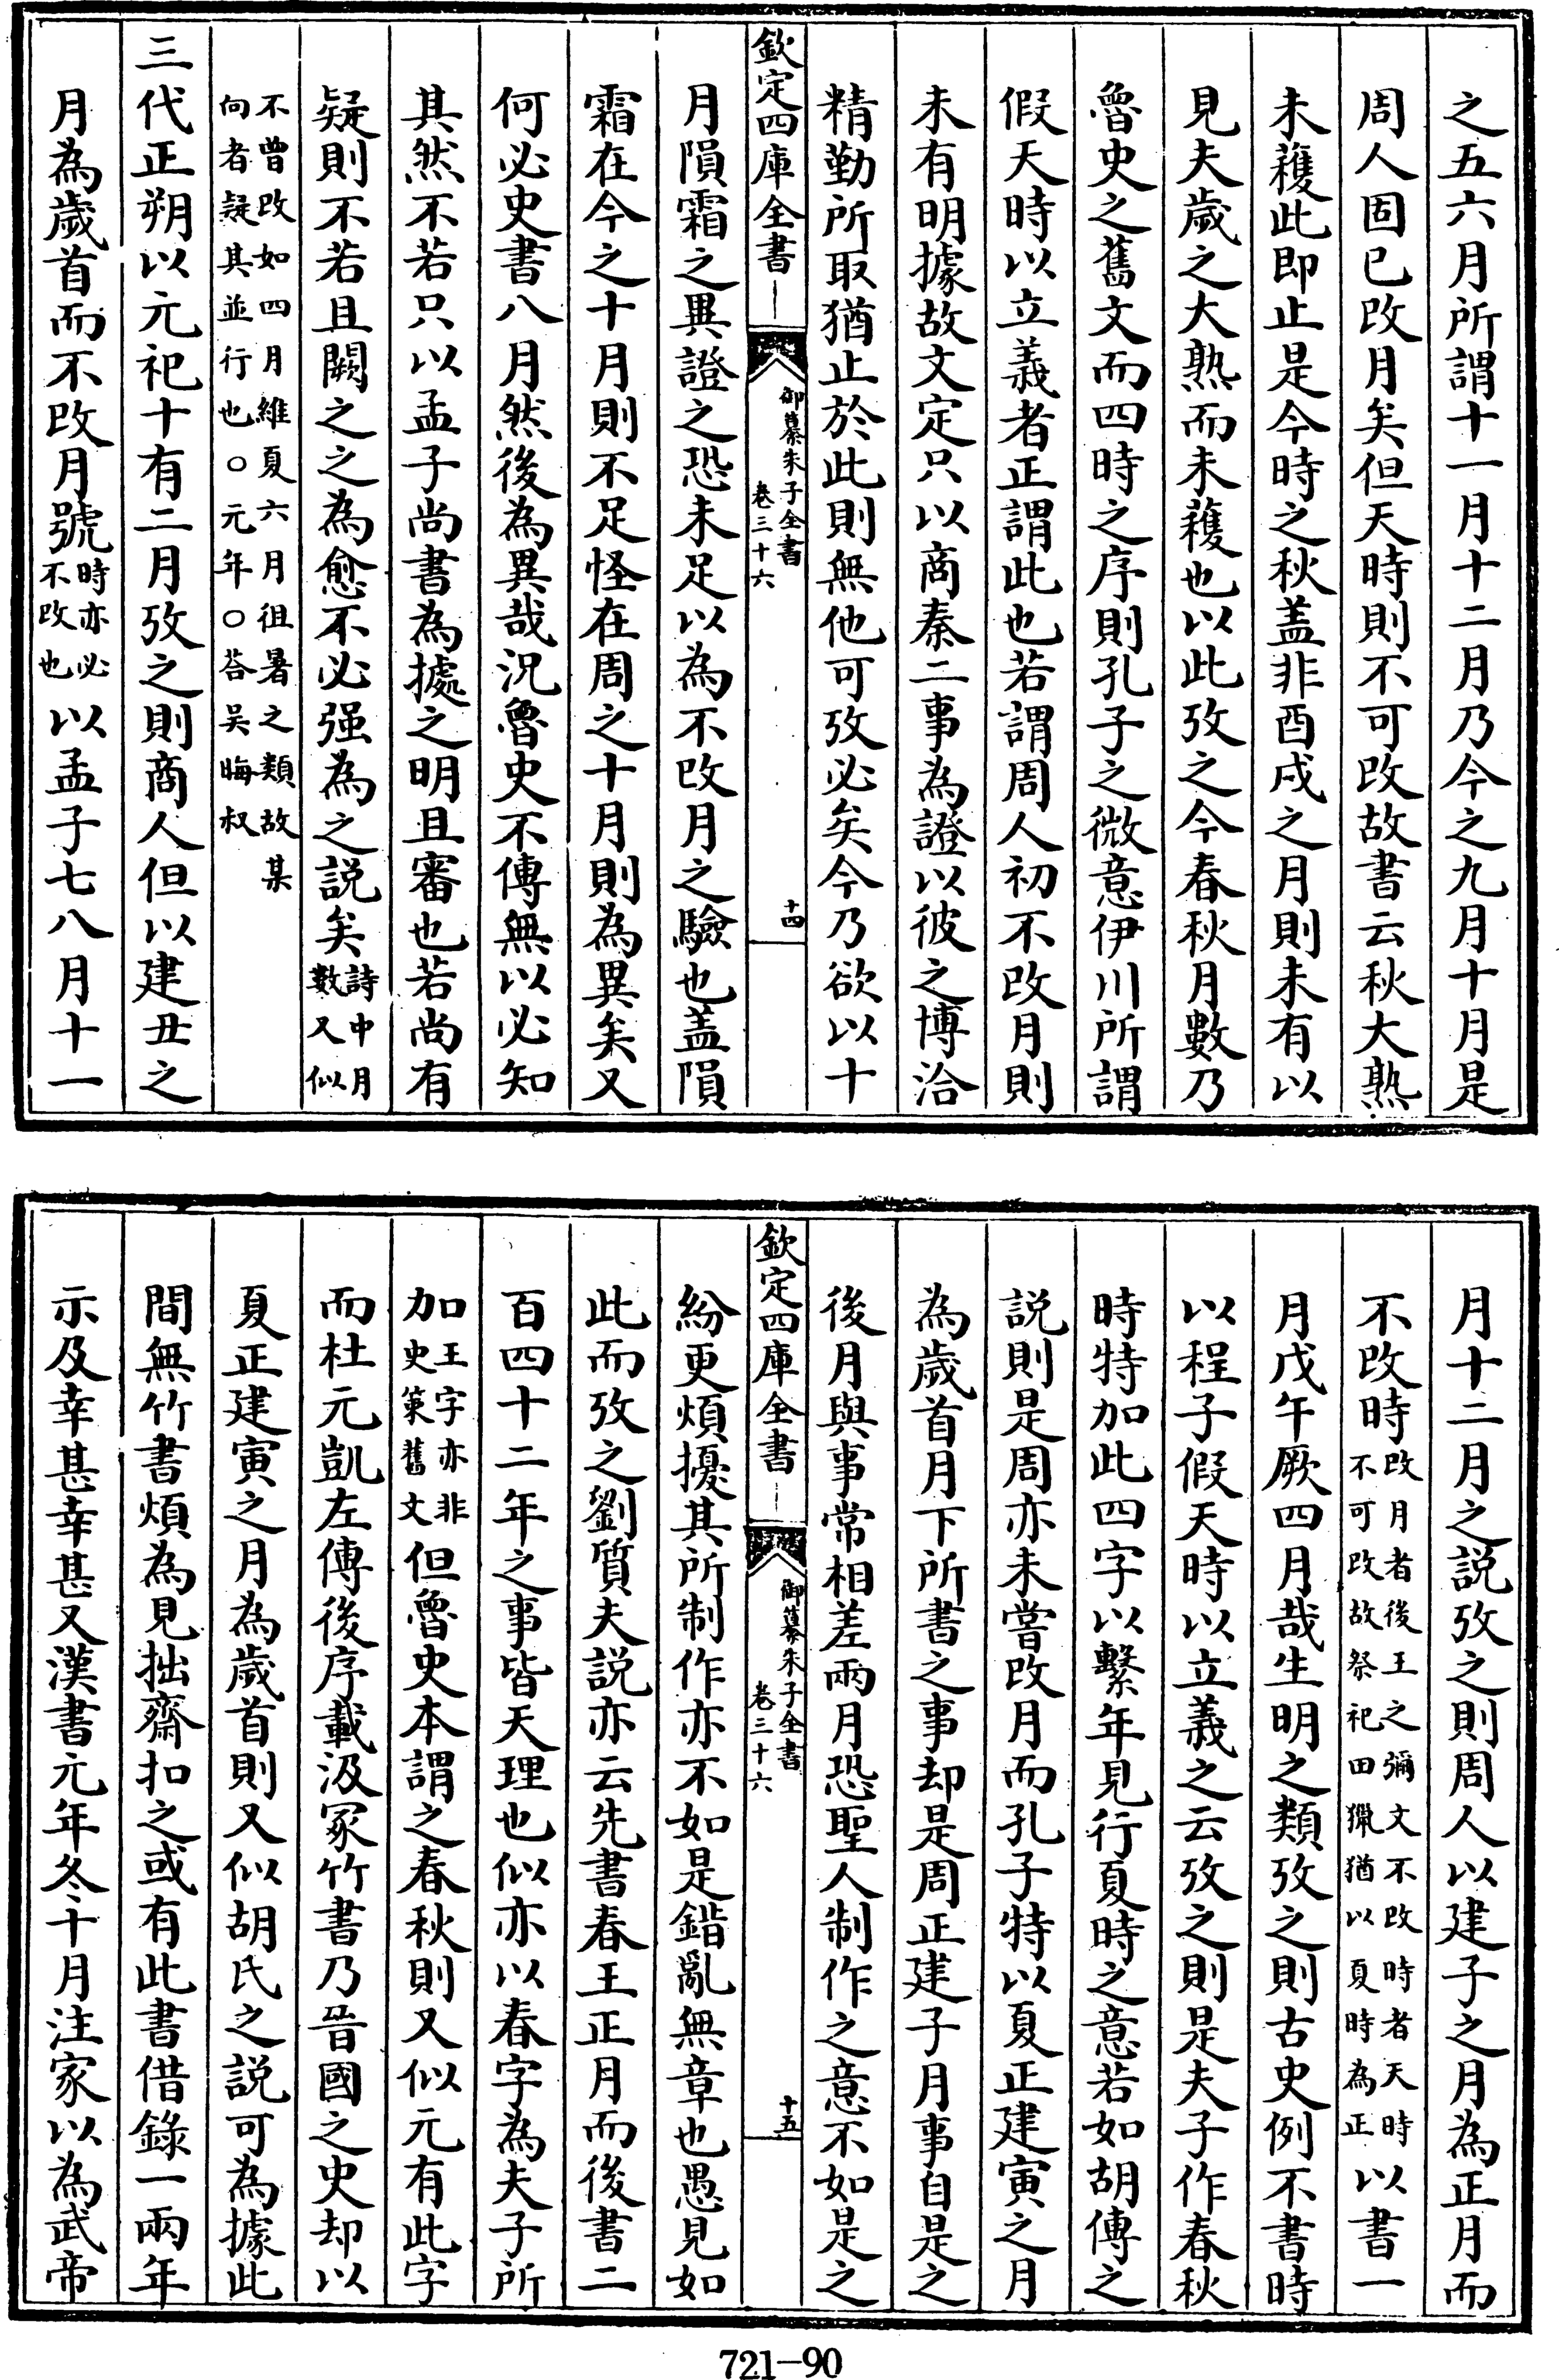 之五六月所謂十一月十二月乃今之九月十月是
周人固已改月矣但天時則不可改故書云秋大熟
未穫此即止是今時之秋盖非酉戌之月則未有以
見夫歲之大熟而未穫也以此攷之今春秋月數乃
魯史之舊文而四時之序則孔子之微意伊川所謂
假天時以立義者正謂此也若謂周人初不改月則
未有明據故文定只以商秦二事為證以彼之博洽
精勤所取猶止於此則無他可攷必矣今乃欲以十
欽定四庫全書
御纂朱子全書
卷三十六
十四
月隕霜之異證之恐未足以為不改月之驗也盖隕
霜在今之十月則不足怪在周之十月則為異矣又
何必史書八月然後為異哉況魯史不傳無以必知
其然不若只以孟子尚書為據之明且審也若尚有
疑則不若且闕之之為愈不必强為之說矣詩中月
數又似
不曾改如四月維夏六月徂暑之類故某
向者疑其並行也○元年○荅吴晦叔
三代正朔以元祀十有二月攷之則商人但以建丑之
月為歲首而不改月號時亦必
不改也以孟子七八月十一
月十二月之說攷之則周人以建子之月為正月而
不改時改月者後王之彌文不改時者天時
不可改故祭祀田獵猶以夏時為正以書一
月戊午厥四月哉生明之類攷之則古史例不書時
以程子假天時以立義之云攷之則是夫子作春秋
時特加此四字以繫年見行夏時之意若如胡傳之
說則是周亦未嘗改月而孔子特以夏正建寅之月
為歲首月下所書之事却是周正建子月事自是之
後月與事常相差兩月恐聖人制作之意不如是之
欽定四庫全書
御纂朱子全書
卷三十六
十五
紛更煩擾其所制作亦不如是錯亂無章也愚見如
此而攷之劉質夫說亦云先書春王正月而後書二
百四十二年之事皆天理也似亦以春字為夫子所
加王字亦非
史策舊文但魯史本謂之春秋則又似元有此字
而杜元凱左傳後序載汲冢竹書乃晉國之史却以
夏正建寅之月為歲首則又似胡氏之說可為據此
間無竹書煩為見拙齋扣之或有此書借錄一兩年
示及幸甚幸甚又漢書元年冬十月注家以為武帝
721-90